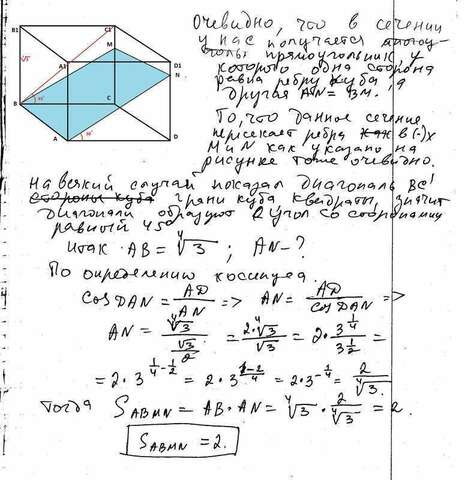 B1
C1
M
A1
D1
N
B
C
A
D
45°
30°
Очевидно, что в сечении
у нас получается
прямоугольник, у
которого одна сторона
равна ребру куба, а
другая AN = BM.
То, что данное сечение
пересекает ребра как в (·)x
M и N как указано на
рисунке тоже очевидно.
На всякий случай показал диагональ BC1
стороны куба грани куба квадраты, значит
диагонали образуют угол со сторонами
равный 45°
Итак AB = ∜3 ; AN - ?
По определению косинуса
cos DAN = AD/AN => AN = AD/cos DAN =>
AN = ∜3/(√3/2) = 2·∜3/√3 = 2·3^(1/4)/3^(1/2) =
= 2·3^(1/4-1/2) = 2·3^((1-2)/4) = 2·3^(-1/4) = 2/∜3.
тогда S_ABMN = AB·AN = ∜3 · 2/∜3 = 2.
S_ABMN = 2.